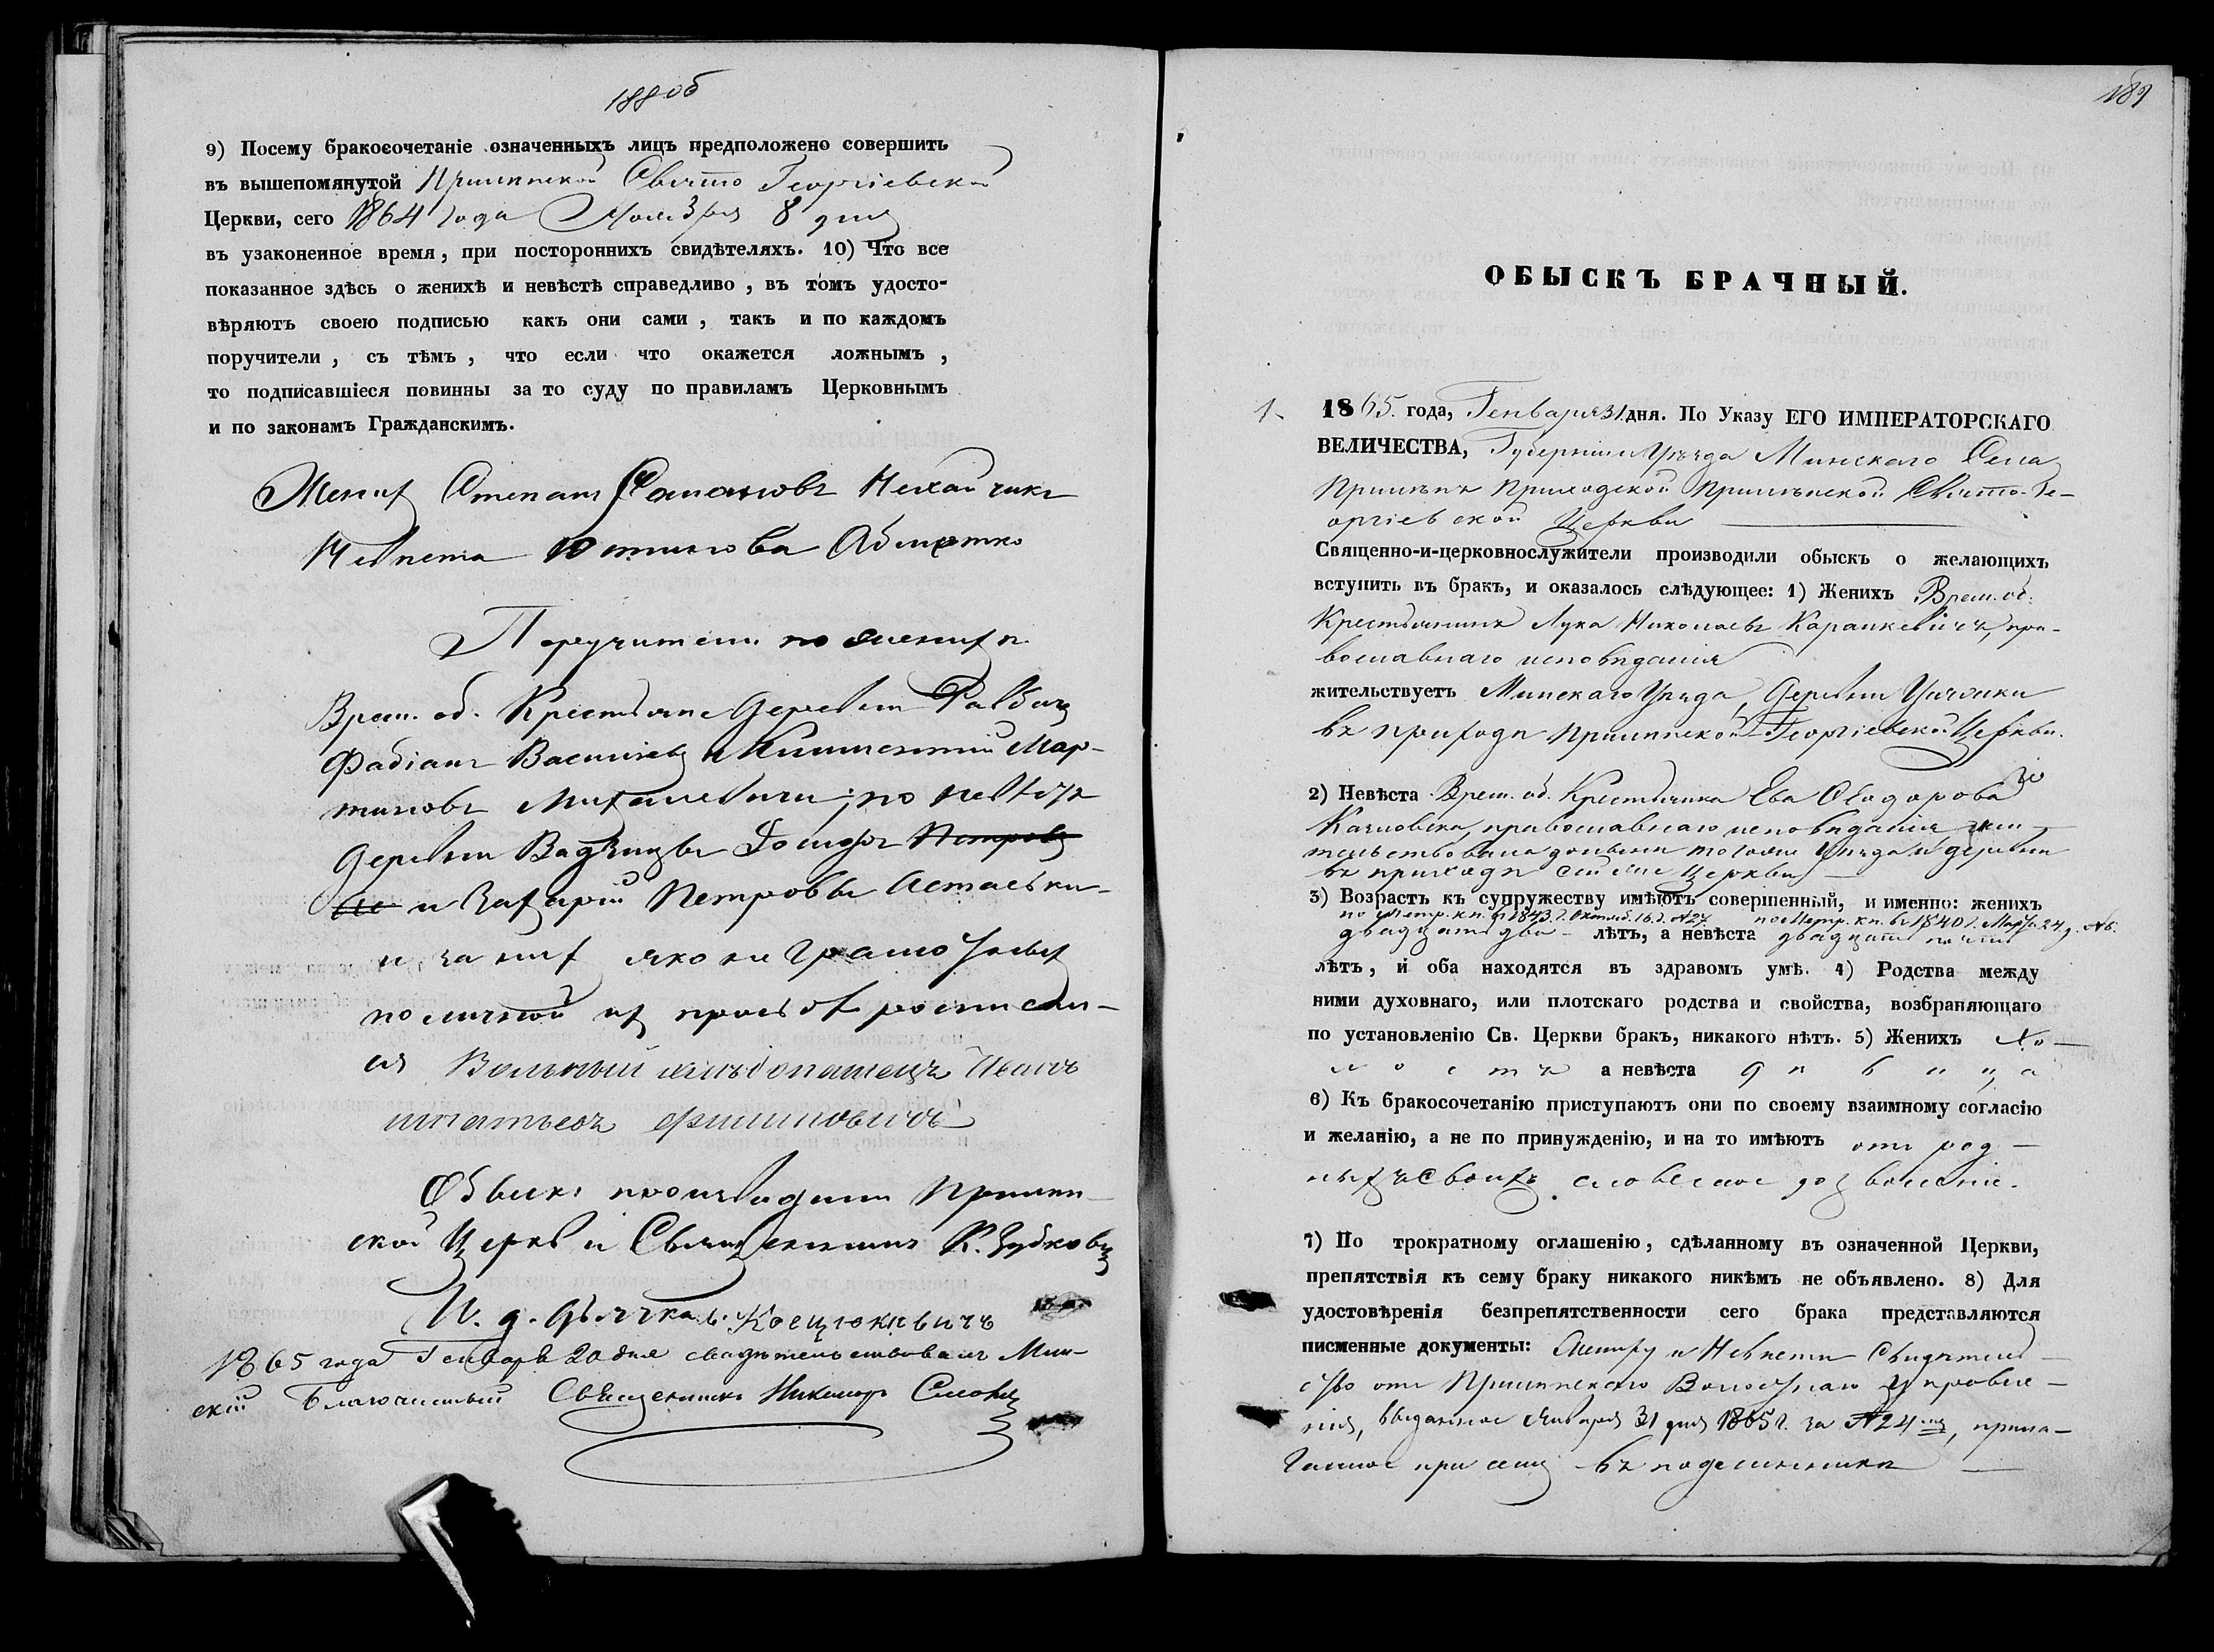 188об
9) Посему бракосочетаніе означенныхъ лицъ предположено совершить
въ вышепомянутой Прилѣпской Свято Георгіевской
Церкви, сего 1864 года Ноября 8 дня
въ узаконенное время, при постороннихъ свидѣтеляхъ. 10) Что все
показанное здѣсь о женихѣ и невѣстѣ справедливо, въ томъ удосто-
вѣряютъ своею подписью какъ они сами, такъ и по каждомъ
поручители, съ тѣмъ, что если что окажется ложнымъ,
то подписавшіеся повинны за то суду по правиламъ Церковнымъ
и по законамъ Гражданскимъ.
Женихъ Степанъ Романовъ Нехайчикъ
Невѣста
Поручители по женихѣ
Врем. об. Крестьяне деревни
Фабіанъ Васильевъ и Мар-
тиновъ Михалевичи; по невѣстѣ
деревни Іосифъ Петровъ
и Захарій Петровы
и за них яко неграмотныхъ
по личной их прозьбѣ росписал-
ся Вольный Иванъ
Игнатьевъ Филиповичъ
Обыскъ производили Прилѣп-
ской Церкви Священникъ К. Зубковъ
И. д. дьячка Костюкевичъ
1865 года Генваря 20 дня свидѣтельствовалъ Мин-
скій Благочинный Священникъ Никаноръ
189
ОБЫСКЪ БРАЧНЫЙ.
1. 1865. года, Генваря 31 дня. По Указу ЕГО ИМПЕРАТОРСКАГО
ВЕЛИЧЕСТВА, Губерніи и Уѣзда Минскаго Села
Прилѣпъ Приходской Прилѣпской Свято-Ге-
оргіевской Церкви
Священно-и-церковнослужители производили обыскъ о желающихъ
вступить въ бракъ, и оказалось слѣдующее: 1) Женихъ Врем. об.
Крестьянинъ Лука Николаевъ Каранкевичъ, пра-
вославнаго исповѣданія
жительствуетъ Минскаго Уѣзда, деревни
въ приходѣ Прилѣпской Георгіевской Церкви.
2) Невѣста Врем. об. Крестьянка Ева Ѳеодорова
православнаго исповѣданія, жи-
тельствовала донынѣ того же Уѣзда и деревни
въ приходѣ сей же Церкви
3) Возрастъ къ супружеству имѣютъ совершенный, и именно: женихъ
по Метр. кн. въ 1843 г. Октяб. 16 д. №27. по Метр. кн. въ 1840 г. Марта 24 д. №6.
двадцати два лѣтъ, а невѣста двадцати пяти
лѣтъ, и оба находятся въ здравомъ умѣ. 4) Родства между
ними духовнаго, или плотскаго родства и свойства, возбраняющаго
по установленію Св. Церкви бракъ, никакого нѣтъ. 5) Женихъ Хо-
лостъ а невѣста дѣвица
6) Къ бракосочетанію приступаютъ они по своему взаимному согласію
и желанію, а не по принужденію, и на то имѣютъ отъ род-
ныхъ своихъ словесное дозволеніе.
7) По трократному оглашенію, сдѣланному въ означенной Церкви,
препятствія къ сему браку никакого никѣмъ не объявлено. 8) Для
удостовѣренія безпрепятственности сего брака представляются
писменные документы: Жениху и Невѣсти Свидѣтель-
ство отъ Прилѣпскаго Волостнаго Управле-
нія, выданное Января 31 дня 1865 г. за №24, прила-
гаемое при семъ въ подлинникѣ